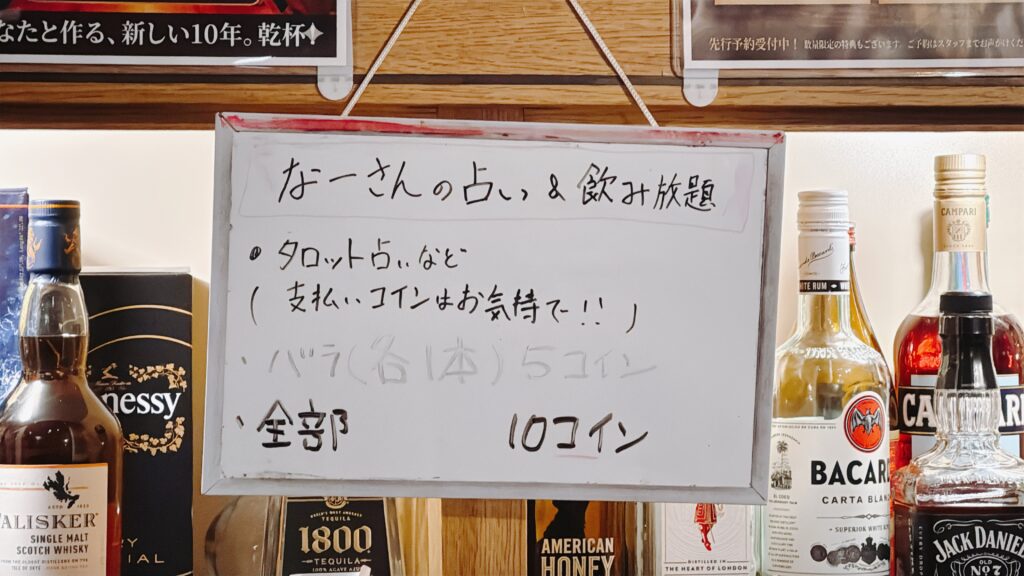 なたと作る、新しい10年。乾杯!
先行予約受付中! 数量限定の特典もございます。ご予約はスタッフまでお声がけくだ
なーさんの占い & 飲み放題
・タロット占いなど
( 支払いコインはお気持で!! )
・バラ(各1本) 5コイン
・全部 10コイン
TALISKER
SINGLE MALT
SCOTCH WHISKY
nessy
1800
TEQUILA
100% AGAVE
AMERICAN
HONEY
DISTILLED IN
THE HEART OF LONDON
WHITE RUM
BACAR
CARTA BLAN
SUPERIOR WHITE
CAMPARI
CAMPARI
JACK DANIEL
OLD
No.7